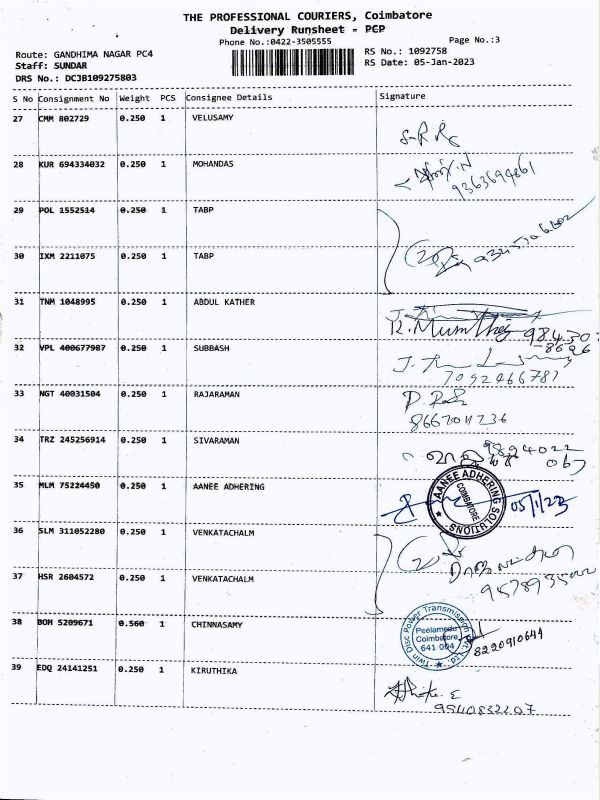 THE PROFESSIONAL COURIERS, Coimbatore
Delivery Runsheet - PCP
Phone No.:0422-3505555
Page No.:3
Route: GANDHIMA NAGAR PC4
RS No.: 1092758
Staff: SUNDAR
RS Date: 05-Jan-2023
DRS No.: DCJB109275803
S No Consignment No Weight PCS Consignee Details Signature
27 CMM 802729 0.250 1 VELUSAMY
28 KUR 694334032 0.250 1 MOHANDAS
9363694861
29 POL 1552514 0.250 1 TABP
30 IXM 2211075 0.250 1 TABP
31 TNM 1048995 0.250 1 ABDUL KATHER
32 VPL 400677987 0.250 1 SUBBASH
7092466787
33 NGT 40031504 0.250 1 RAJARAMAN
34 TRZ 245256914 0.250 1 SIVARAMAN
9894022
067
35 MLM 75224450 0.250 1 AANEE ADHERING
AANEE ADHERING SOLUTIONS
COIMBATORE
05/1/23
36 SLM 311052280 0.250 1 VENKATACHALM
37 HSR 2604572 0.250 1 VENKATACHALM
38 BOM 5209671 0.560 1 CHINNASAMY
Twin Disc Power Transmission Pvt. Ltd.
Peelamedu
Coimbatore
641 004
8220910644
39 EDQ 24141251 0.250 1 KIRUTHIKA
9540832207